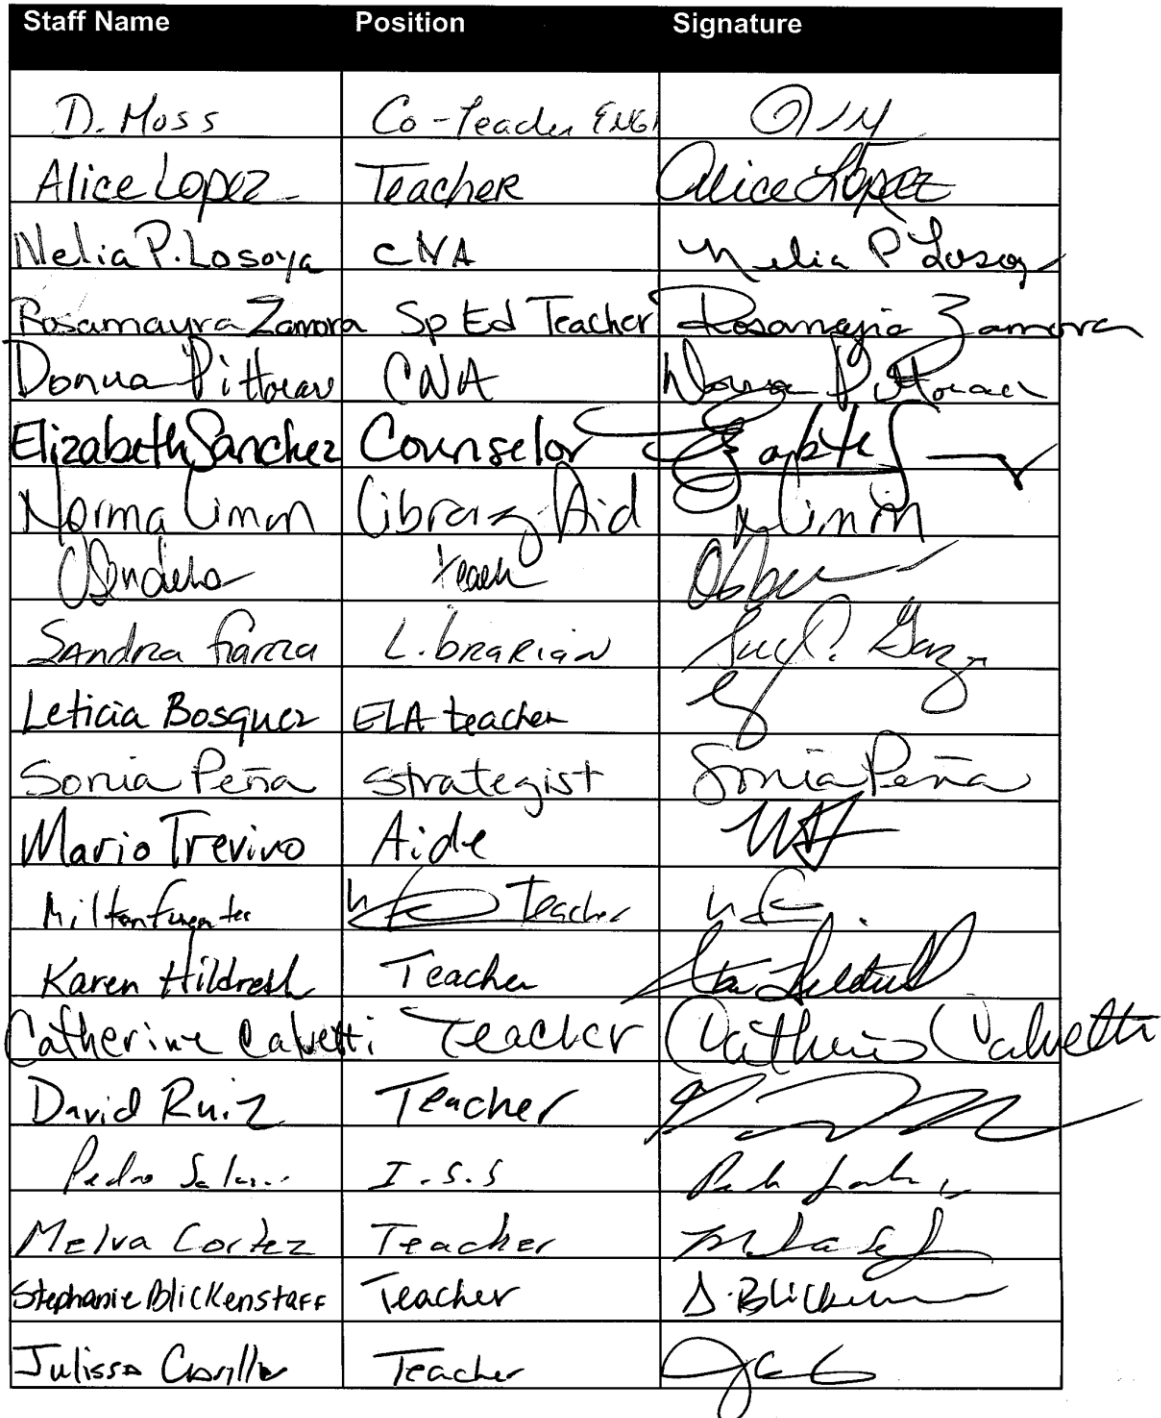 Staff Name Position Signature
D. Moss Co-Teacher ENG
Alice Lopez Teacher Alice Lopez
Nelia P. Losoya CNA Nelia P Losoy
Rosamayra Zamora Sp Ed Teacher Rosamayra Zamora
Donna CNA Donna
Elizabeth Sanchez Counselor
Norma Limon Library Aid N Limon
Teach
Sandra Garza Librarian Garza
Leticia Bosquez ELA teacher
Sonia Peña Strategist Sonia Peña
Mario Trevino Aide
Milton Fuentes Teacher
Karen Hildreth Teacher
Catherine Calvetti Teacher Catherine Calvetti
David Ruiz Teacher
Pedro I.S.S
Melva Cortez Teacher
Stephanie Blickenstaff Teacher S. Blicken
Julissa Teacher